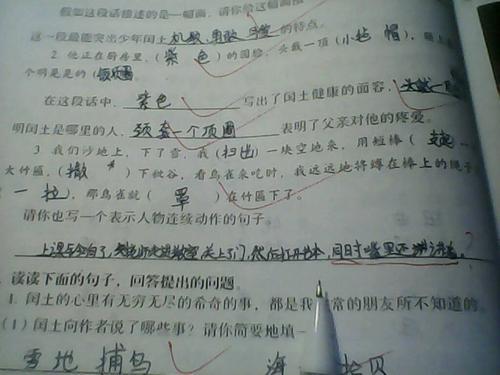 假如这段话描述的是一幅画,请你给这幅画
这一段最能突出少年闰土机敏、勇敢的特点。
2. 他正在厨房里,(紫色)的圆脸,头戴一顶(小毡帽),颈上
个明晃晃的(银项圈
在这段话中,紫色写出了闰土健康的面容,头戴一顶
明闰土是哪里的人,颈套一个项圈表明了父亲对他的疼爱。
3 我们沙地上,下了雪,我(扫出)一块空地来,用短棒(支起
大竹匾,(撒)下秕谷,看鸟雀来吃时,我远远地将缚在棒上的绳子
一拉,那鸟雀就(罩)在竹匾下了。
请你也写一个表示人物连续动作的句子。
上课铃响了,老师走进教室,关上了门,然后打开书本,同时嘴里还
读读下面的句子,回答提出的问题。
1. 闰土的心里有无穷无尽的希奇的事,都是我常的朋友所不知道的。
(1) 闰土向作者说了哪些事?请你简要地填一
雪地捕鸟 海 拾贝